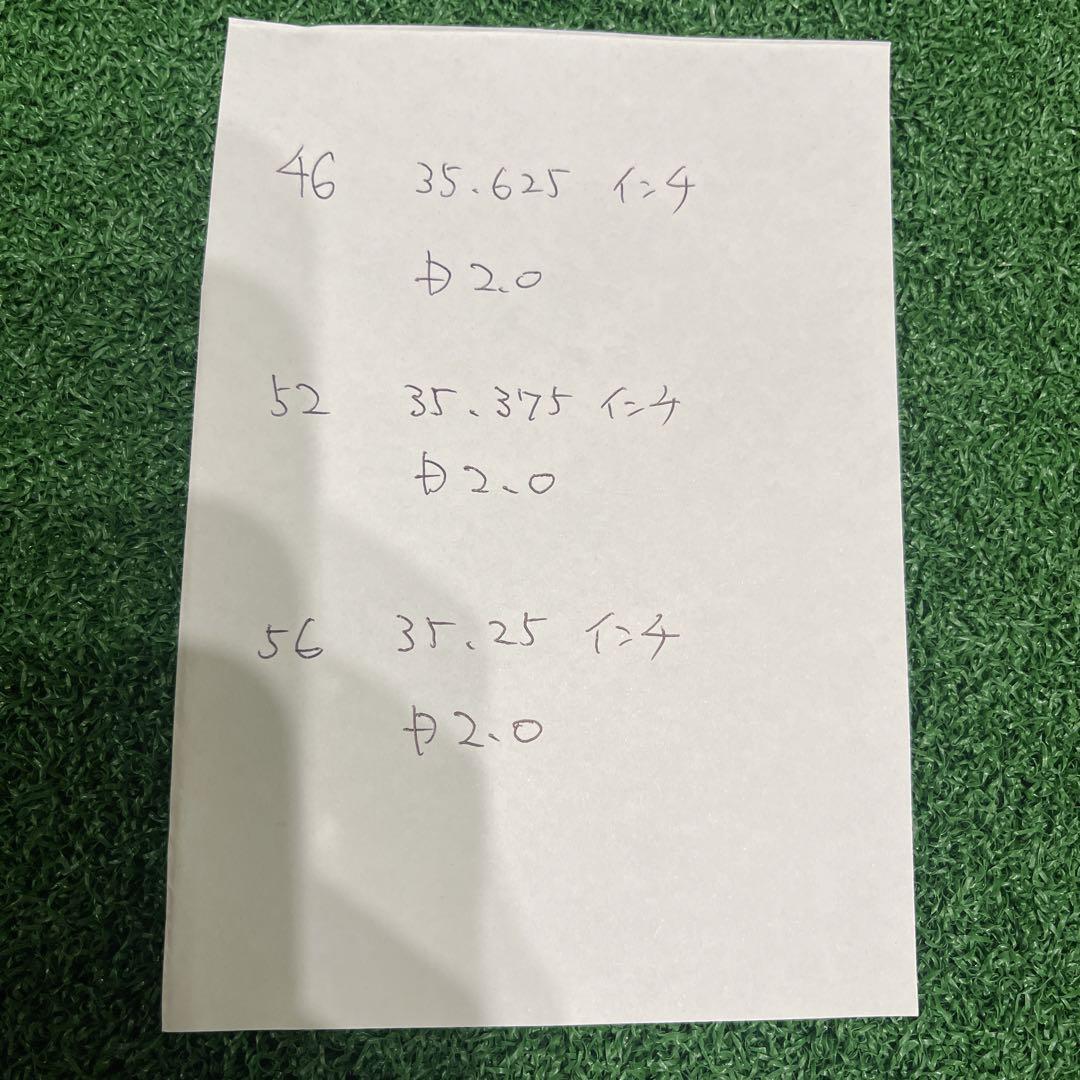 46 35.625 インチ
D2.0
52 35.375 インチ
D2.0
56 35.25 インチ
D2.0